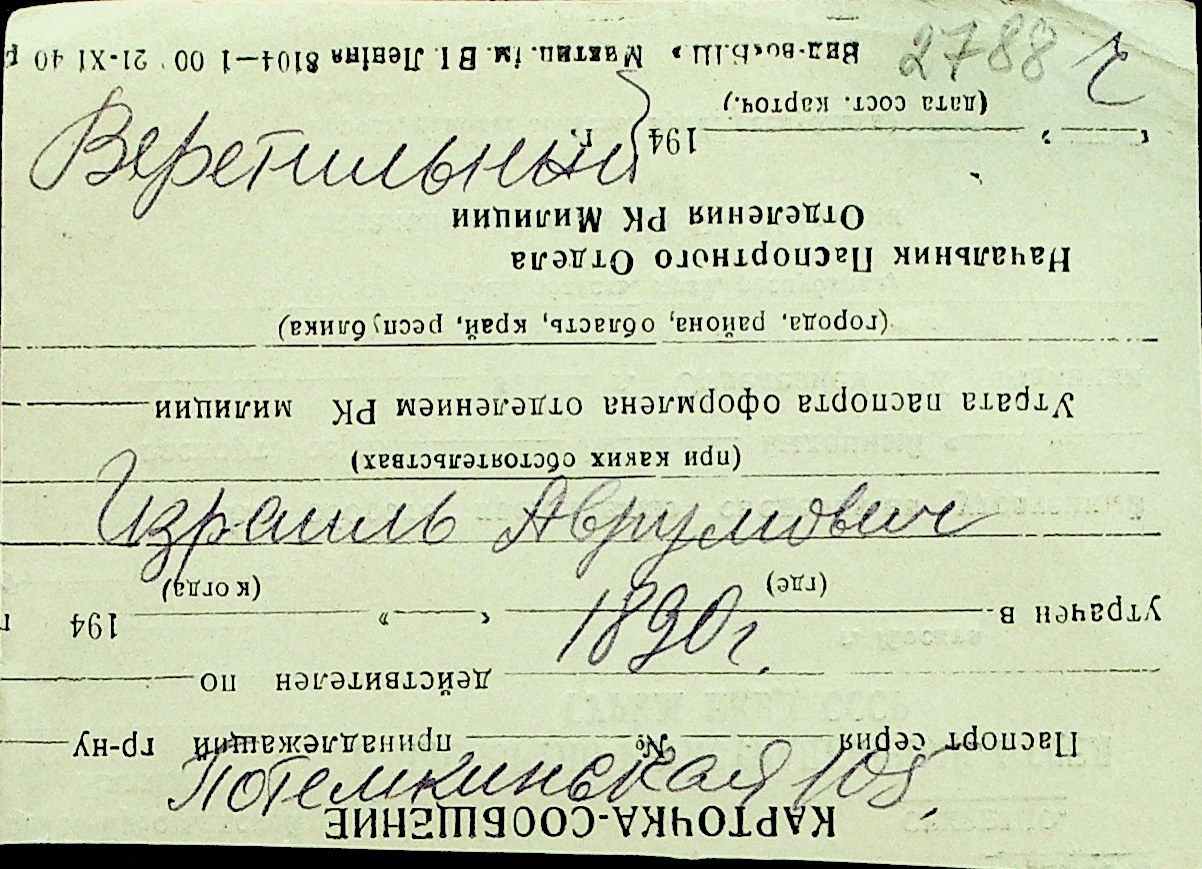 2788
Веретильный
Израиль Аврумович
1890 г.
Потемкинская 108.
КАРТОЧКА-СООБЩЕНИЕ
Паспорт серия № принадлежащий гр-ну
действителен по
утрачен в « » 194 г
(где) (когда)
(при каких обстоятельствах)
Утрата паспорта оформлена отделением РК милиции
(города, района, область, край, республика)
Начальник Паспортного Отдела
Отделения РК Милиции
« » 194 г.
(дата сост. карточ.)
Вид-во «Б.Ш» ім. ВІ Леніна 8104—1 00 21-XI 40 р